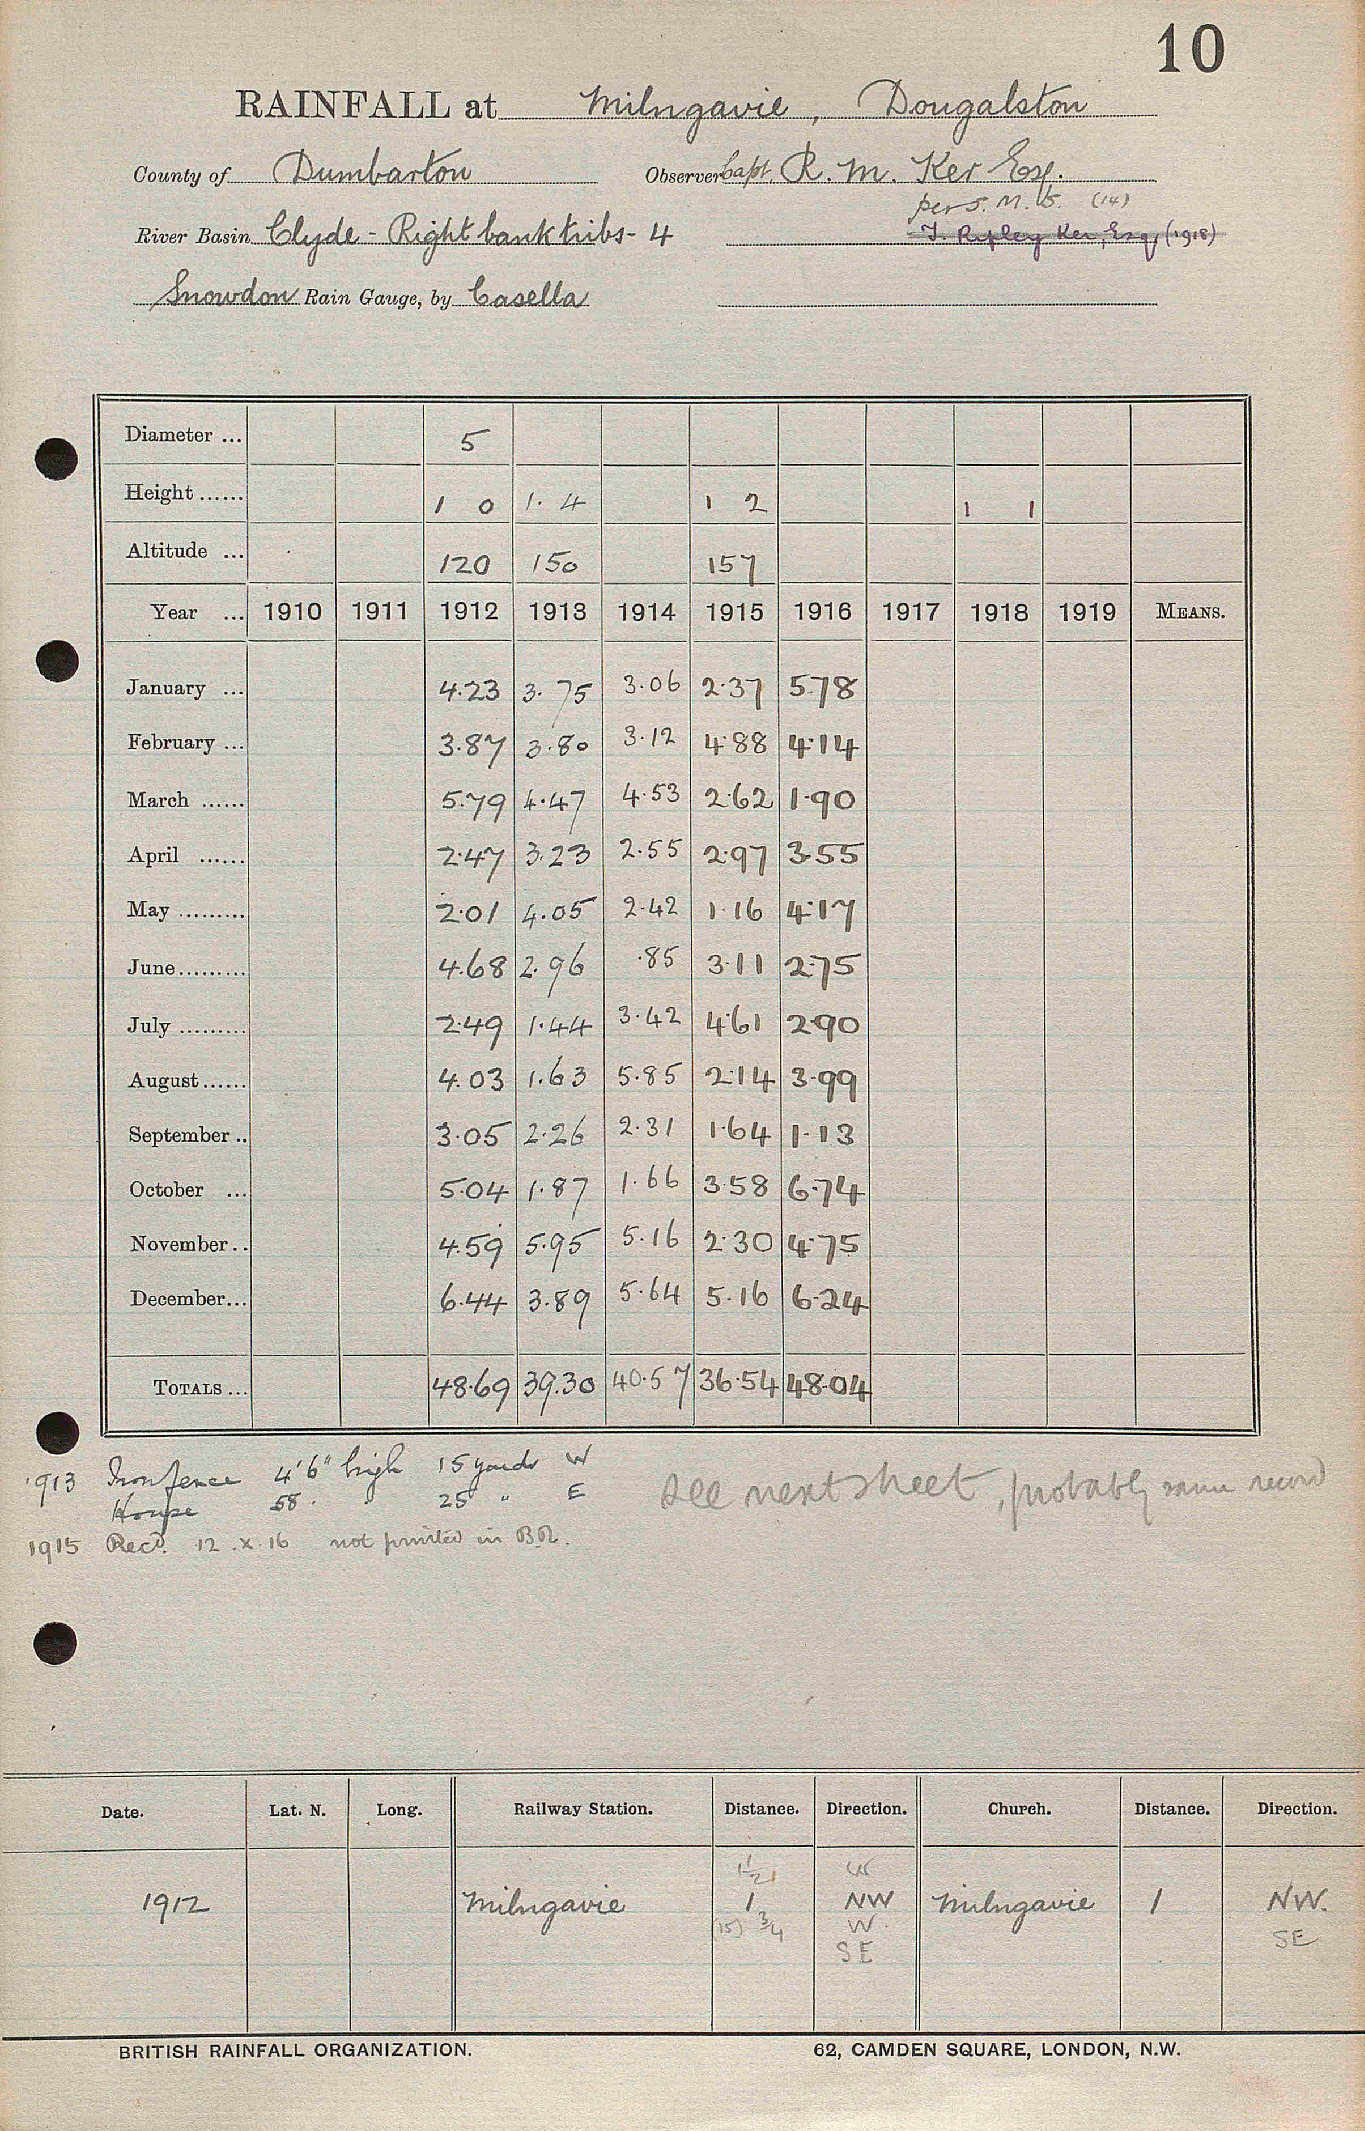 10
RAINFALL at Milngavie, Dougalston
County of Dumbarton Observer Capt. R. M. Ker Esq.
per S. M. (14)
River Basin Clyde - Right bank tribs - 4 T. Ripley Ker, Esq, (1918)
Snowdon Rain Gauge, by Casella
Diameter ... 5
Height ...... 1 0 1. 4 1 2 1 1
Altitude ... 120 150 157
Year ... 1910 1911 1912 1913 1914 1915 1916 1917 1918 1919 MEANS.
January ... 4.23 3.75 3.06 2.37 5.78
February ... 3.87 3.80 3.12 4.88 4.14
March ...... 5.79 4.47 4.53 2.62 1.90
April ...... 2.47 3.23 2.55 2.97 3.55
May ......... 2.01 4.05 2.42 1.16 4.17
June ......... 4.68 2.96 .85 3.11 2.75
July ......... 2.49 1.44 3.42 4.61 2.90
August ...... 4.03 1.63 5.85 2.14 3.99
September .. 3.05 2.26 2.31 1.64 1.13
October ... 5.04 1.87 1.66 3.58 6.74
November .. 4.59 5.95 5.16 2.30 4.75
December ... 6.44 3.89 5.64 5.16 6.24
TOTALS ... 48.69 39.30 40.57 36.54 48.04
1913 Iron fence 4'6" high 15 yards W
House 58 " 25 " E
see next sheet, probably same record
1915 Recd. 12.x.16 not printed in B.R.
Date. Lat. N. Long. Railway Station. Distance. Direction. Church. Distance. Direction.
1½ W
1912 Milngavie 1 NW Milngavie 1 NW.
(15) ¾ W. SE
SE
BRITISH RAINFALL ORGANIZATION. 62, CAMDEN SQUARE, LONDON, N.W.